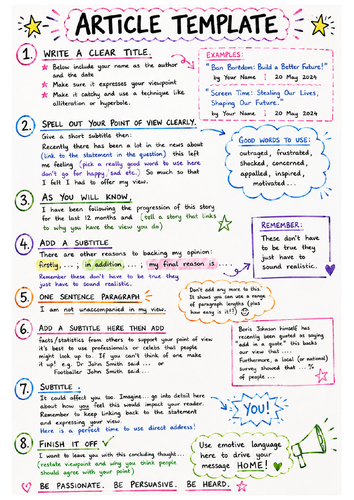 ARTICLE TEMPLATE
1. WRITE A CLEAR TITLE.
★ Below include your name as the author
and the date
★ Make sure it expresses your viewpoint
★ Make it catchy and use a technique like
alliteration or hyperbole.
EXAMPLES:
"Ban Boredom: Build a Better Future!"
by Your Name | 20 May 2024
"Screen Time: Stealing Our Lives,
Shaping Our Future."
by Your Name | 20 May 2024
2. SPELL OUT YOUR POINT OF VIEW CLEARLY.
Give a short subtitle then:
Recently there has been a lot in the news about
(link to the statement in the question) this left
me feeling (pick a really good word to use here
don't go for happy, sad etc.) So much so that
I felt I had to offer my view.
GOOD WORDS TO USE:
outraged, frustrated,
shocked, concerned,
appalled, inspired,
motivated...
3. AS YOU WILL KNOW,
I have been following the progression of this story
for the last 12 months and (tell a story that links
to why you have the view you do)
4. ADD A SUBTITLE
There are other reasons to backing my opinion:
firstly,...; in addition,...; my final reason is....
Remember these don't have to be true they
just have to sound realistic.
REMEMBER:
These don't have
to be true they
just have to
sound realistic.
5. ONE SENTENCE PARAGRAPH
I am not unaccompanied in my view.
Don't add any more to this.
It shows you can use a range
of paragraph lengths (plus
how easy is it?!)
6. ADD A SUBTITLE HERE THEN ADD
facts/statistics from others to support your point of view
it's best to use professionals or celebs that people
might look up to. If you can't think of one make
it up! e.g. Dr John Smith said... or
Footballer John Smith said...
Boris Johnson himself has
recently been quoted as saying
"add in a quote" this backs
our view that....
Furthermore, a local (or national)
survey showed that ... %
of people ...
7. SUBTITLE.
It could affect you too. Imagine... go into detail here
about how you feel this would impact your reader.
Remember to keep linking back to the statement
and expressing your view.
Here is a perfect time to use direct address!
YOU!
8. FINISH IT OFF ✓
I want to leave you with this concluding thought...
(restate viewpoint and why you think people
should agree with your point)
Use emotive language
here to drive your
message HOME!
BE PASSIONATE. BE PERSUASIVE. BE HEARD.